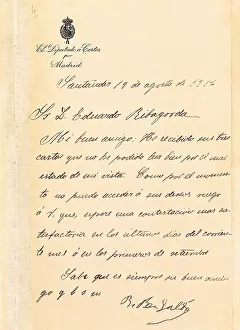 El Diputado á Cortes
por
Madrid
Santander 19 de agosto de 1912
Sr D. Eduardo Ribagorda
Mi buen amigo: He recibido sus tres
cartas que no he podido leer bien por el mal
estado de mi vista. Como por el momento
no puedo acceder á sus deseos ruego
á V. que, espere una contestación mas sa-
tisfactoria en los últimos dias del corrien-
te mes ó en los primeros de setiembre
Sabe que es siempre su buen ami-
go q b s m
B. Pérez Galdós